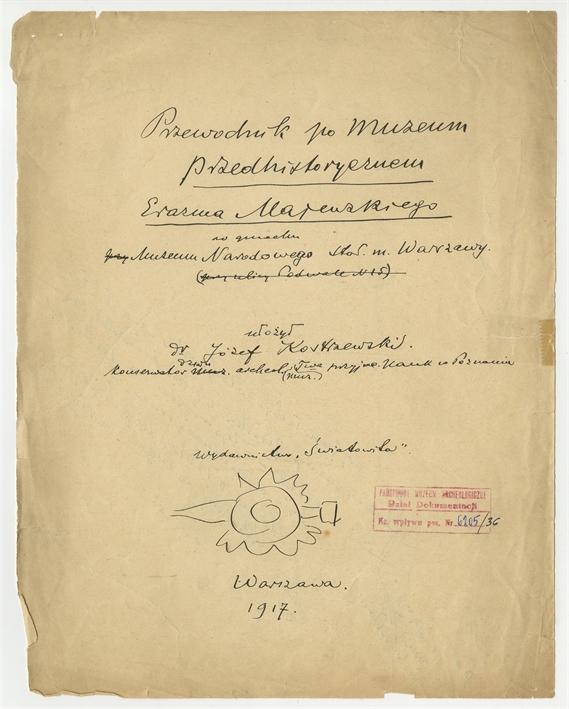 Przewodnik po Muzeum
Przedhistorycznem
Erazma Majewskiego
w gmachu
przy Muzeum Narodowego stoł. m. Warszawy.
(przy ulicy Podwale N 15)
ułożył
dr Józef Kostrzewski.
działu
Konserwator muz. archeol. Twa przyjac. Nauk w Poznaniu
(muz.)
Wydawnictwo „Światowita”.
PAŃSTWOWE MUZEUM ARCHEOLOGICZNE
Dział Dokumentacji
Ks. wpływu poz. Nr. 6205/36
Warszawa.
1917.